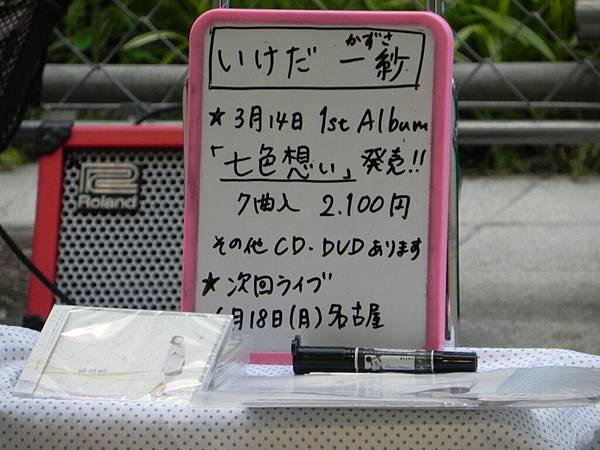 かずさ
いけだ 一紗
★3月14日 1st Album
「七色想い」発売!!
7曲入 2.100円
その他 CD・DVDあります
★次回ライブ
6月18日(月)名古屋
Roland